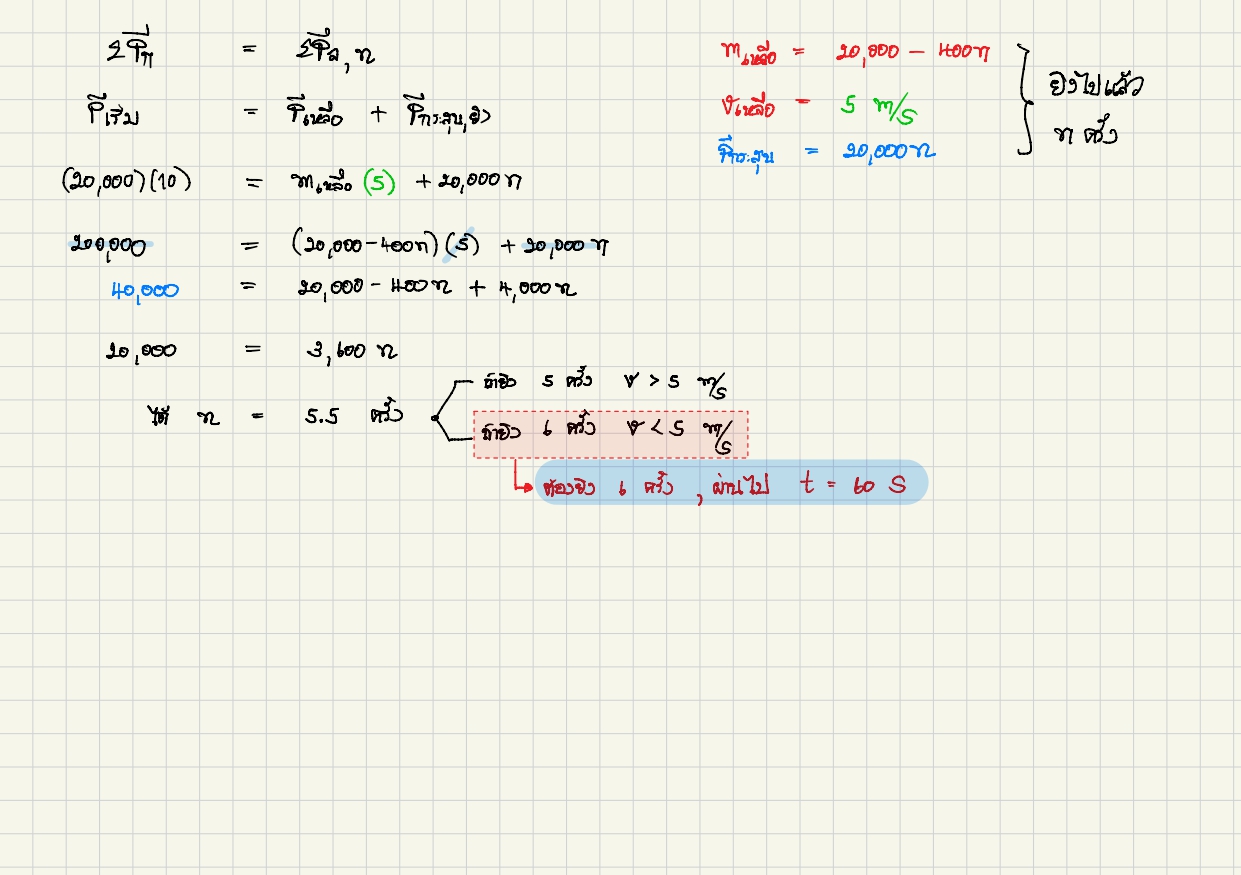 ΣP⃗ก = ΣP⃗ล,n
P⃗เริ่ม = P⃗เหลือ + P⃗กระสุน,ยิง
(20,000)(10) = mเหลือ (5) + 20,000n
200,000 = (20,000-400n)(5) + 20,000n
40,000 = 20,000 - 400n + 4,000n
20,000 = 3,600 n
ได้ n = 5.5 ครั้ง
ถ้ายิง 5 ครั้ง v > 5 m/s
ถ้ายิง 6 ครั้ง v < 5 m/s
ต้องยิง 6 ครั้ง , ผ่านไป t = 60 s
mเหลือ = 20,000 - 400n
vเหลือ = 5 m/s
P⃗กระสุน = 20,000n
ยิงไปแล้ว
n ครั้ง